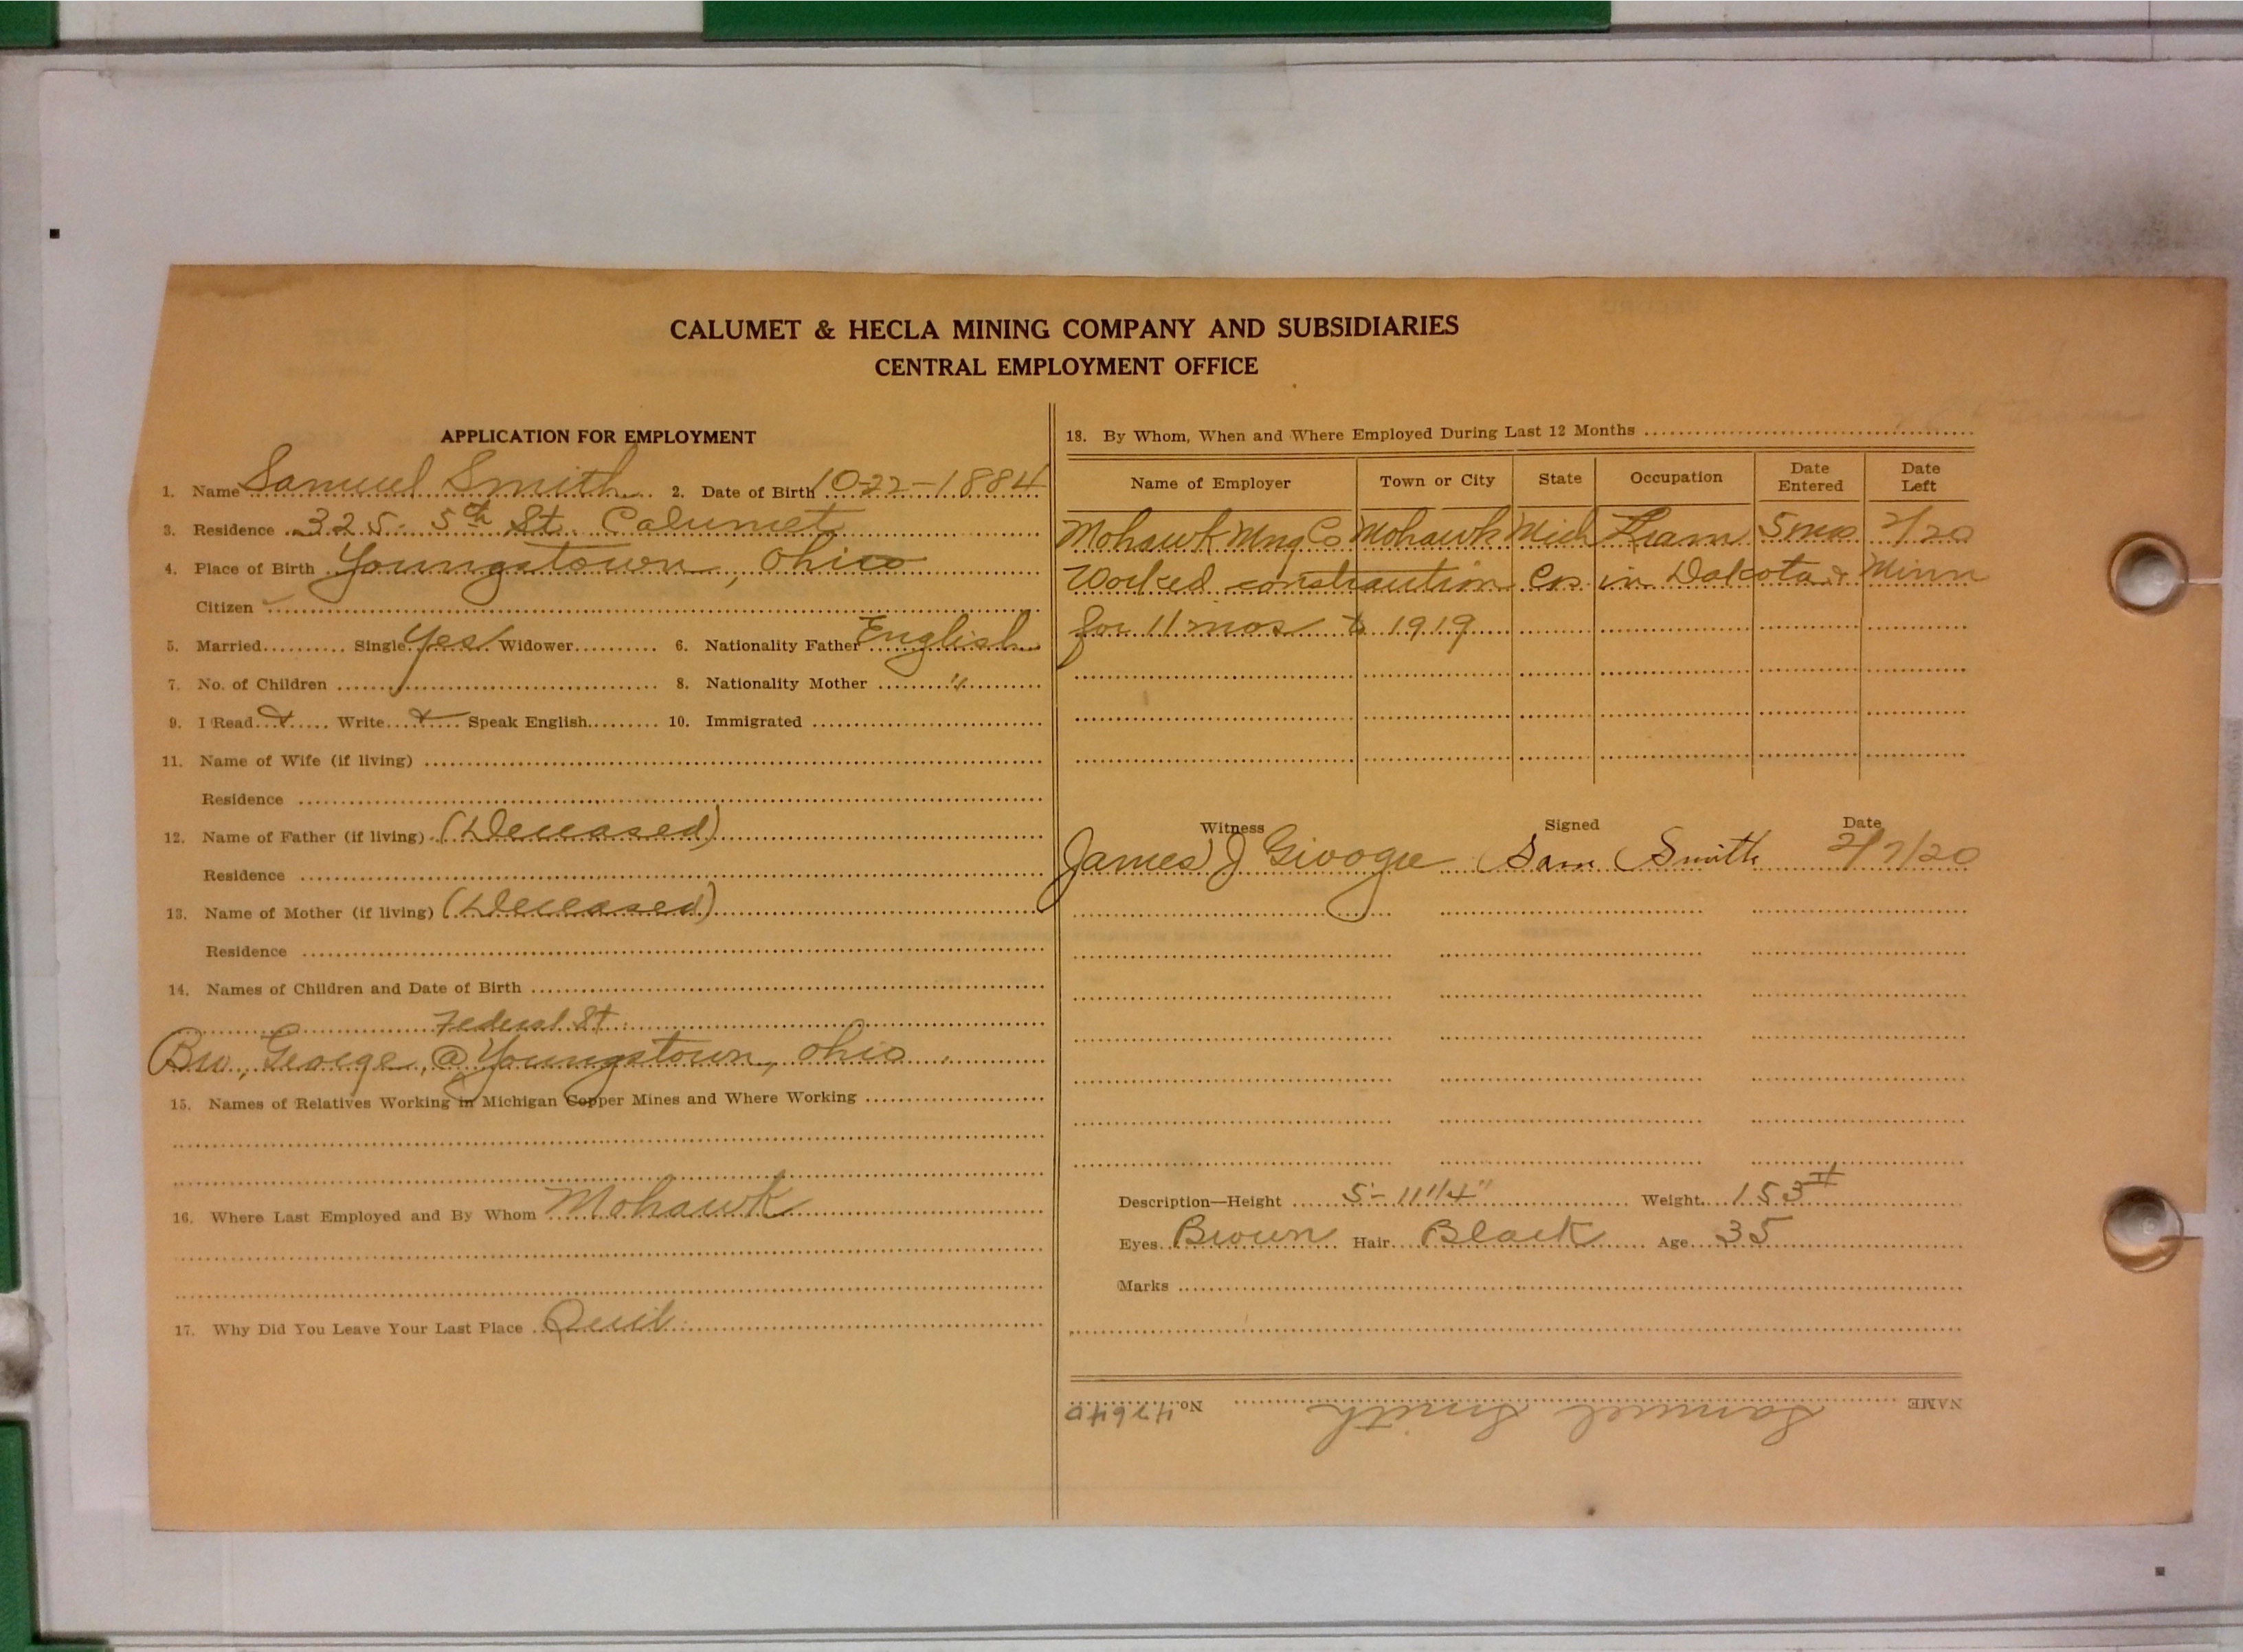 CALUMET & HECLA MINING COMPANY AND SUBSIDIARIES
CENTRAL EMPLOYMENT OFFICE
APPLICATION FOR EMPLOYMENT
1. Name Samuel Smith 2. Date of Birth 10-22-1884
3. Residence 325- 5th St. Calumet
4. Place of Birth Youngstown, Ohio
Citizen
5. Married Single Yes Widower 6. Nationality Father English
7. No. of Children 8. Nationality Mother "
9. I Read x Write x Speak English 10. Immigrated
11. Name of Wife (if living)
Residence
12. Name of Father (if living) (Deceased)
Residence
13. Name of Mother (if living) (Deceased)
Residence
14. Names of Children and Date of Birth
Federal St
Bro, George, @ Youngstown, Ohio
15. Names of Relatives Working in Michigan Copper Mines and Where Working
16. Where Last Employed and By Whom Mohawk
17. Why Did You Leave Your Last Place Quit
18. By Whom, When and Where Employed During Last 12 Months
Name of Employer Town or City State Occupation Date Entered Date Left
Mohawk Mng Co Mohawk Mich Tram 5 mos 2/20
Worked construction Cos in Dakota & Minn
for 11 mos to 1919
Witness Signed Date
James J Sam Smith 2/7/20
Description—Height 5'-11 1/4" Weight 153#
Eyes Brown Hair Black Age 35
Marks
NAME Samuel Smith No.